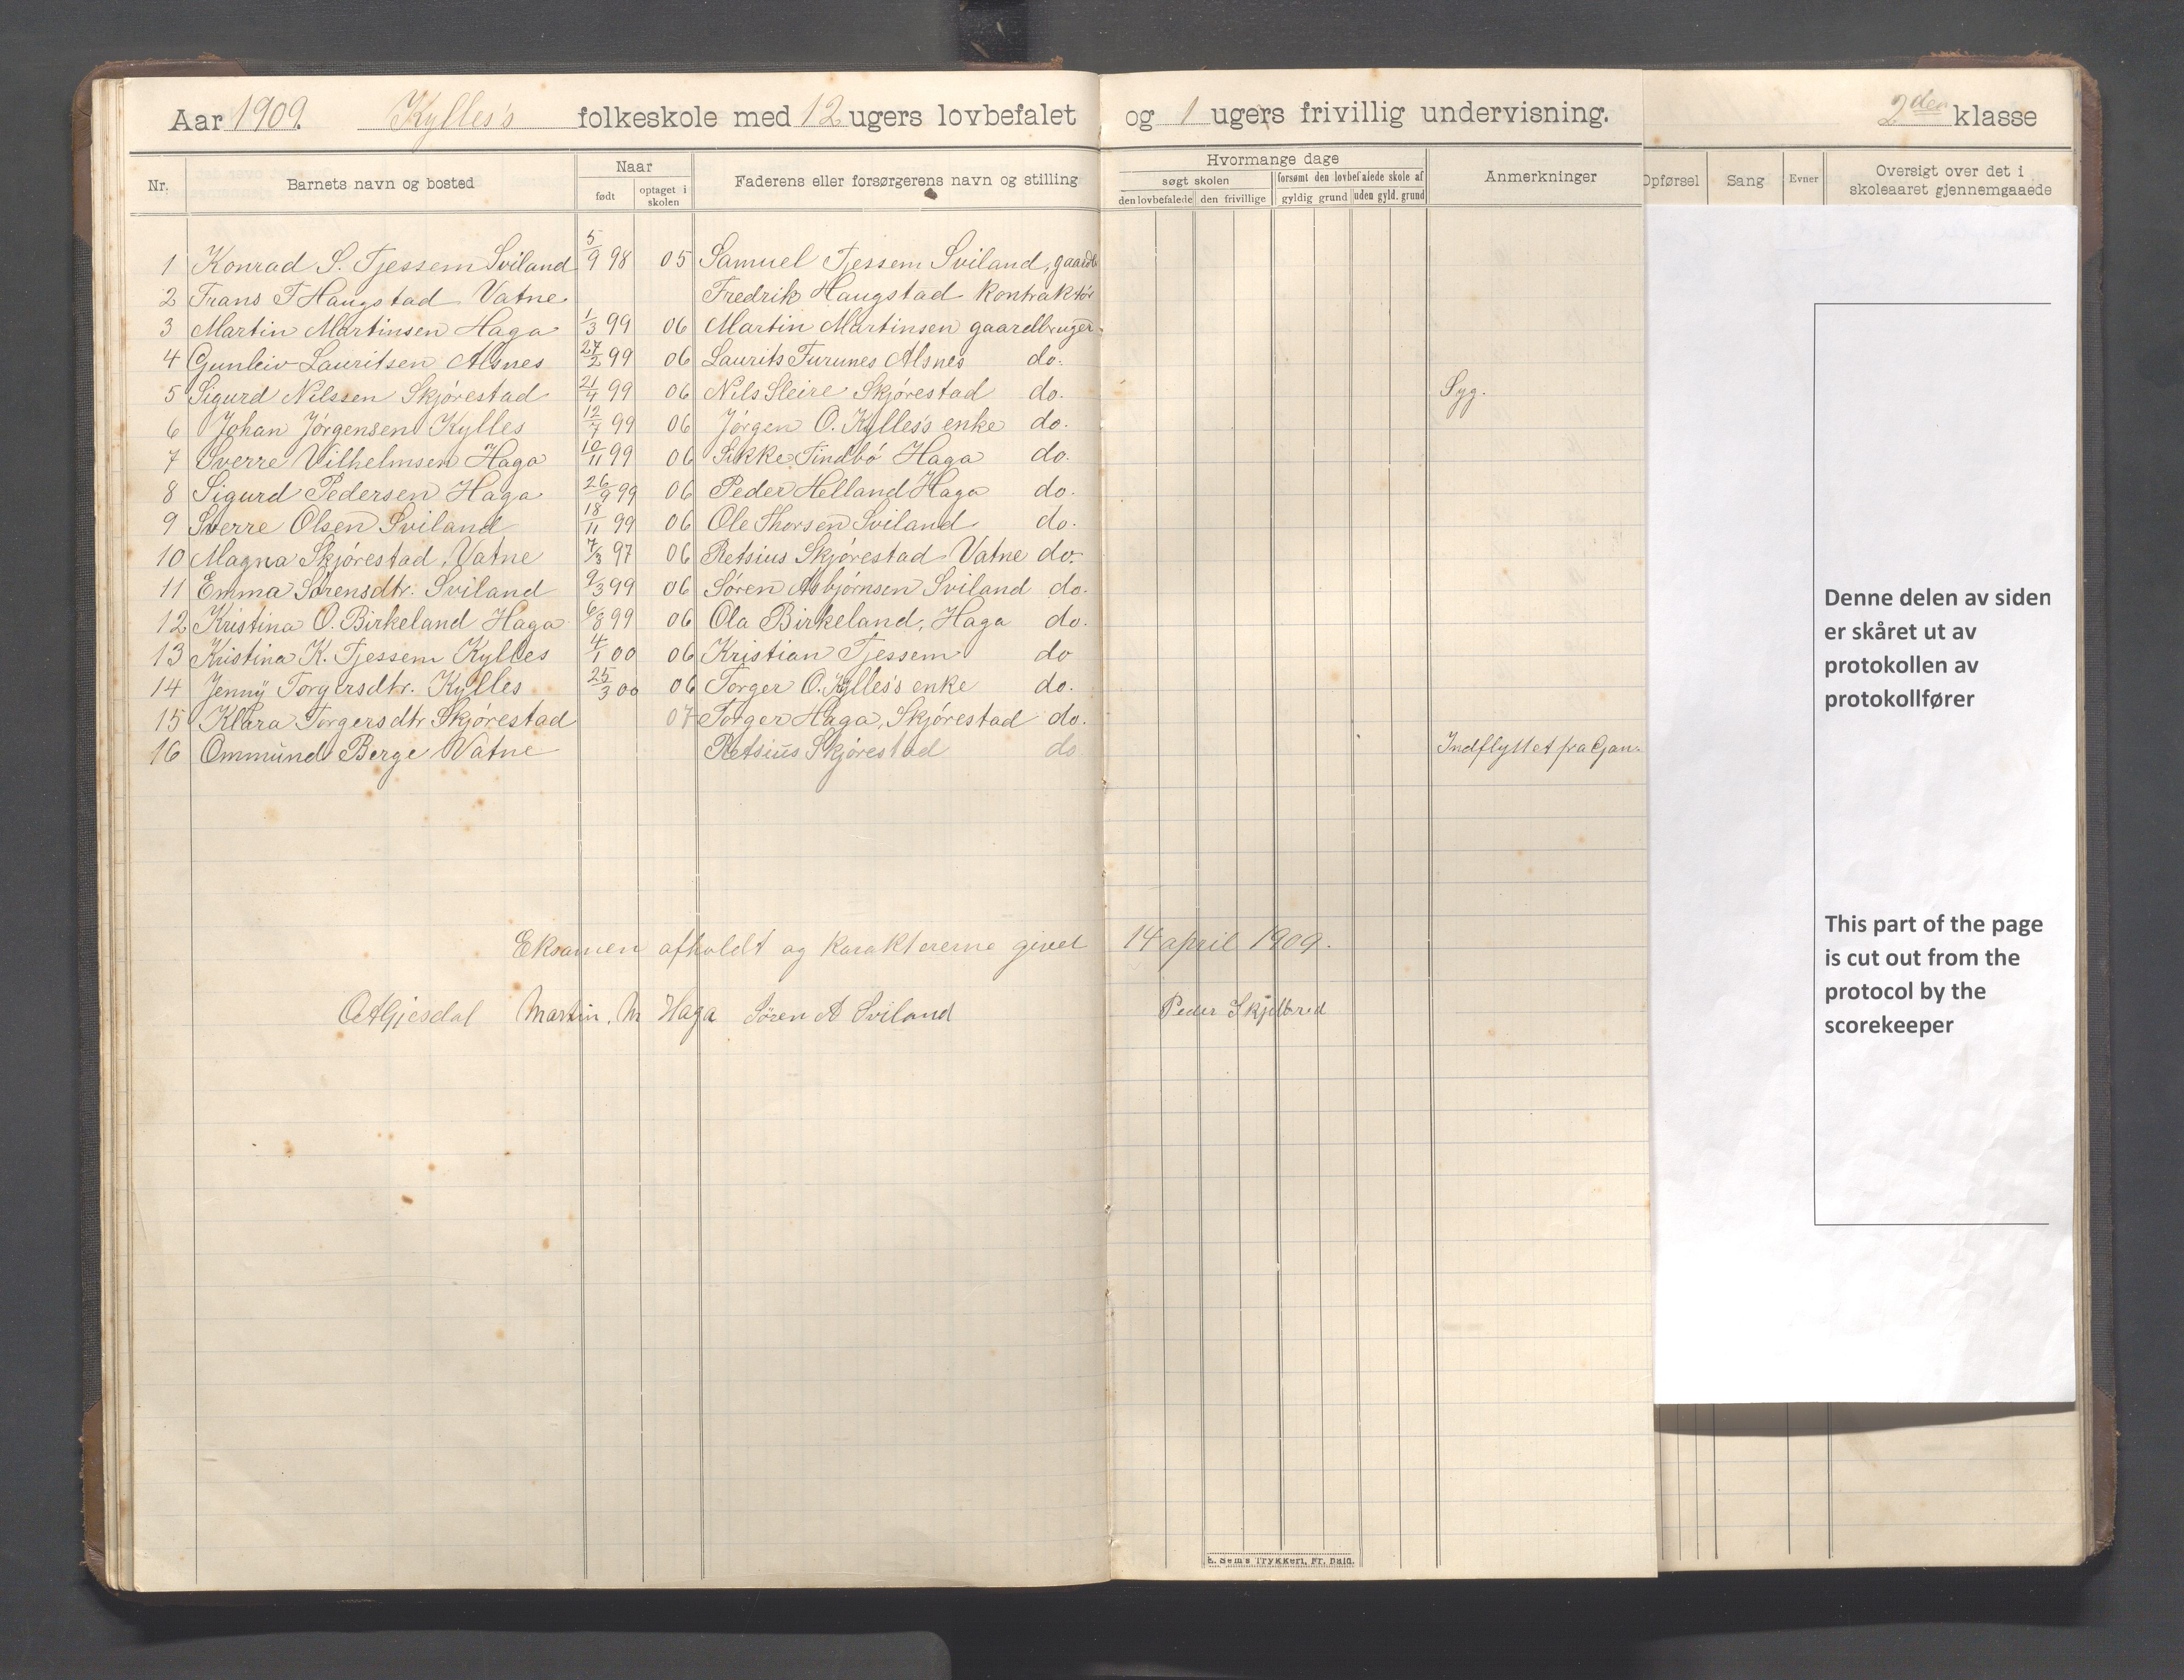 Aar 1909. Kylles's folkeskole med 12 ugers lovbefalet og 1 ugers frivillig undervisning. 2den klasse
Nr. Barnets navn og bosted Naar født optaget i skolen Faderens eller forsørgerens navn og stilling Hvormange dage søgt skolen den lovbefalede den frivillige forsømt den lovbefalede skole af gyldig grund uden gyld. grund Anmerkninger Opførsel Sang Evner Oversigt over det i skoleaaret gjennemgaaede
1 Konrad S. Tjessem Sviland 5/9 98 05 Samuel Tjessem Sviland, gaardb
2 Frans F Haugstad Vatne Fredrik Haugstad kontraktør
3 Martin Martinsen Haga 1/3 99 06 Martin Martinsen gaardbruger
4 Gunleiv Lauritsen Alsnes 27/2 99 06 Laurits Furunes Alsnes do.
5 Sigurd Nilssen Skjørestad 21/4 99 06 Nils Sleire Skjørestad do. Syg.
6 Johan Jørgensen Kylles 12/7 99 06 Jørgen O. Kylles's enke do.
7 Sverre Vilhelmsen Haga 10/11 99 06 Sikke Tindbø Haga do.
8 Sigurd Pedersen Haga 26/9 99 06 Peder Helland Haga do.
9 Sverre Olsen Sviland 18/11 99 06 Ole Thorsen Sviland do.
10 Magna Skjørestad, Vatne 7/3 97 06 Retsius Skjørestad Vatne do.
11 Emma Sørensdtr. Sviland 9/3 99 06 Søren Asbjørnsen Sviland do.
12 Kristina O. Birkeland Haga 6/8 99 06 Ola Birkeland, Haga do.
13 Kristina K. Tjessem Kylles 4/1 00 06 Kristian Tjessem do
14 Jenny Torgersdtr. Kylles 25/3 00 06 Torger O. Kylles's enke do.
15 Klara Torgersdtr Skjørestad 07 Torger Haga, Skjørestad do.
16 Ommund Berge Vatne Retsius Skjørestad do Indflyttet fra Gan.
Eksamen afholdt og karaktererne givet 14 april 1909.
O A Gjesdal Martin. M Haga Søren A Sviland Peder Skjelbred
E. Sem's Trykkeri, Fr. hald.
Denne delen av siden
er skåret ut av
protokollen av
protokollfører
This part of the page
is cut out from the
protocol by the
scorekeeper